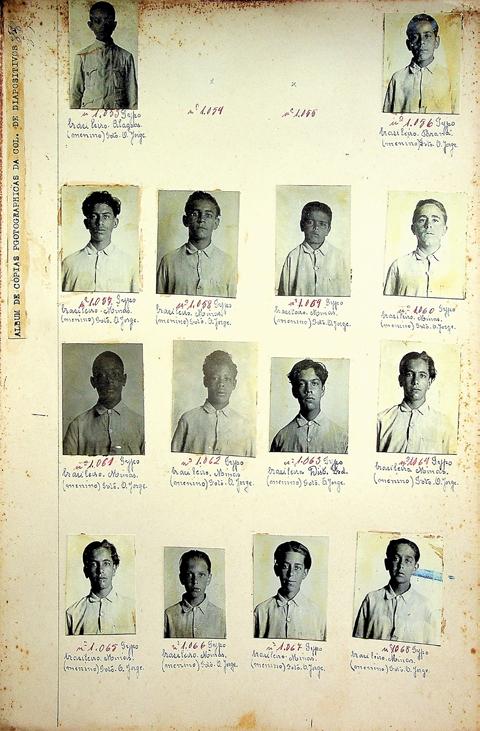 ALBUM DE COPIAS PGOTOGRAPHICAS DA COL. DE DIAPOSITIVOS
nº 1.053 Typo
brasileiro. Alagôas.
(menino) Foto. O. Jorge.
nº 1.054
nº 1.055
nº 1.056 Typo
brasileiro.
(menino) Foto. O. Jorge.
nº 1.057 Typo
brasileiro. Minas.
(menino) Foto. O. Jorge.
nº 1.058 Typo
brasileiro. Minas.
(menino) Foto. O. Jorge.
nº 1.059 Typo
brasileiro. Minas.
(menino) Foto. O. Jorge.
nº 1.060 Typo
brasileiro. Minas.
(menino) Foto. O. Jorge.
nº 1.061 Typo
brasileiro. Minas.
(menino) Foto. O. Jorge.
nº 1.062 Typo
brasileiro. Minas.
(menino) Foto. O. Jorge.
nº 1.063 Typo
brasileiro. Dist. Fed.
(menino) Foto. O. Jorge.
nº 1064 Typo
brasileiro. Minas.
(menino) Foto. O. Jorge.
nº 1.065 Typo
brasileiro. Minas.
(menino) Foto. O. Jorge.
nº 1.066 Typo
brasileiro. Minas.
(menino) Foto. O. Jorge.
nº 1.067 Typo
brasileiro. Minas.
(menino) Foto. O. Jorge.
nº 1068 Typo
brasileiro. Minas.
(menino) Foto. O. Jorge.